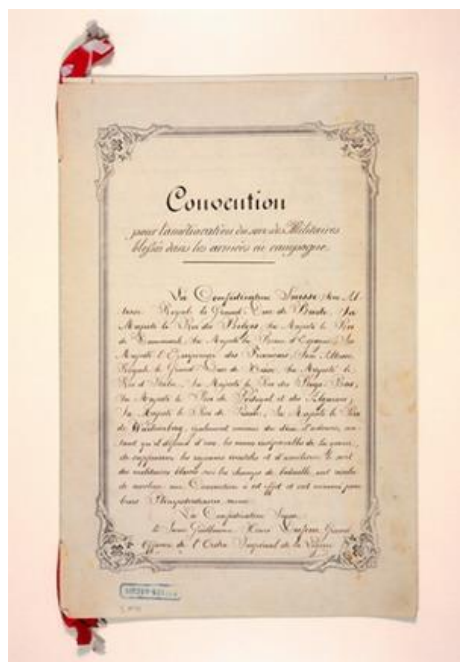 Convention
pour l'amélioration du sort des Militaires
blessés dans les armées en campagne
La Confédération Suisse, Son Al-
tesse Royale le Grand-Duc de Bade, Sa
Majesté le Roi des Belges, Sa Majesté le Roi
de Danemark, Sa Majesté la Reine d'Espagne, Sa
Majesté l'Empereur des Français, Son Altesse
Royale le Grand-Duc de Hesse, Sa Majesté le
Roi d'Italie, Sa Majesté le Roi des Pays-Bas,
Sa Majesté le Roi de Portugal et des Algarves,
Sa Majesté le Roi de Prusse, Sa Majesté le Roi
de Würtemberg, également animés du désir d'adoucir, au-
tant qu'il dépend d'eux, les maux inséparables de la guerre,
de supprimer les rigueurs inutiles et d'améliorer le sort
des militaires blessés sur les champs de bataille, ont résolu
de conclure une Convention à cet effet et ont nommé pour
leurs Plénipotentiaires, savoir:
La Confédération Suisse
le Sieur Guillaume Henri Dufour, Grand
Officier de l'Ordre Impérial de la Légion